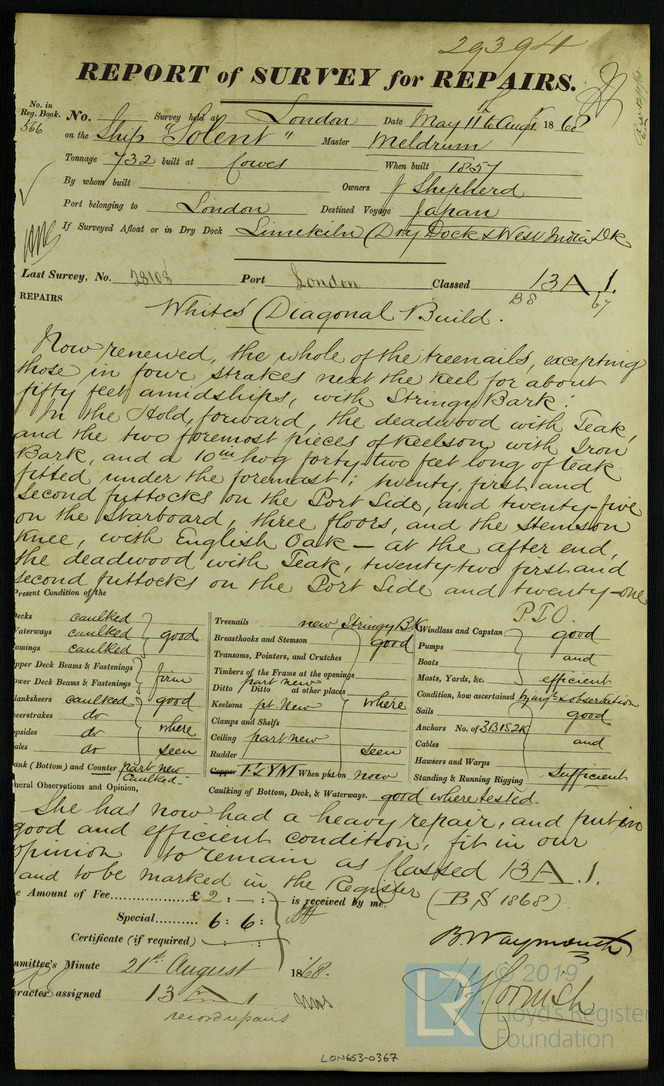 29394
REPORT of SURVEY for REPAIRS.
No. in
Reg. Book.
566
No. Survey held at London Date May 11th to Augt 1868
on the Ship "Solent" Master Meldrum
Tonnage 732 built at Cowes When built 1857
By whom built Owners J Shepherd
Port belonging to London Destined Voyage Japan
If Surveyed Afloat or in Dry Dock Limekiln Dry Dock & West India Dk
Last Survey, No. 28108 Port London Classed 13 A 1.
BS 67
REPAIRS
Whites Diagonal Build.
Now renewed, the whole of the treenails, excepting
those in four strakes next the keel for about
fifty feet amidships, with Stringy Bark:
In the Hold, forward, the deadwood with Teak,
and the two foremost pieces of Keelson with Iron
Bark, and a 10in hog forty two feet long of teak
fitted under the foremast; twenty, first and
second futtocks on the Port Side, and twenty-five
on the Starboard, three floors, and the stemson
Knee, with English Oak — at the after end,
the deadwood with Teak, twenty two first and
second futtocks on the Port Side and twenty-one
P.T.O.
Present Condition of the
Decks caulked
Waterways caulked good
Comings caulked
Upper Deck Beams & Fastenings
Lower Deck Beams & Fastenings firm
Planksheers caulked good
Sheerstrakes do
Topsides do where
Wales do seen
Plank (Bottom) and Counter Part new caulked.
Treenails new Stringy BK
Breasthooks and Stemson good
Transoms, Pointers, and Crutches
Timbers of the Frame at the openings
Ditto Ditto at other places part new
Keelsons pt New where
Clamps and Shelfs
Ceiling part new
Rudder seen
Copper F & YM When put on now
Caulking of Bottom, Deck, & Waterways. good where tested
Windlass and Capstan good
Pumps
Boats and
Masts, Yards, &c. efficient
Condition, how ascertained by insp & observation
Sails good
Anchors No. of 3B 1S 2K
Cables and
Hawsers and Warps
Standing & Running Rigging Sufficient
General Observations and Opinion,
She has now had a heavy repair, and put in
good and efficient condition, fit in our
opinion to remain as Classed 13 A 1.
and to be marked in the Register (BS 1868).
The Amount of Fee......... £ 2 : - : - is received by me,
Special......... 6 : 6 :
Certificate (if required) : :
B Waymouth
Committee's Minute 21st August 1868.
Character assigned 13 A 1
record repairs
© 2019
LR
Lloyd's Register
Foundation
LON653-0367